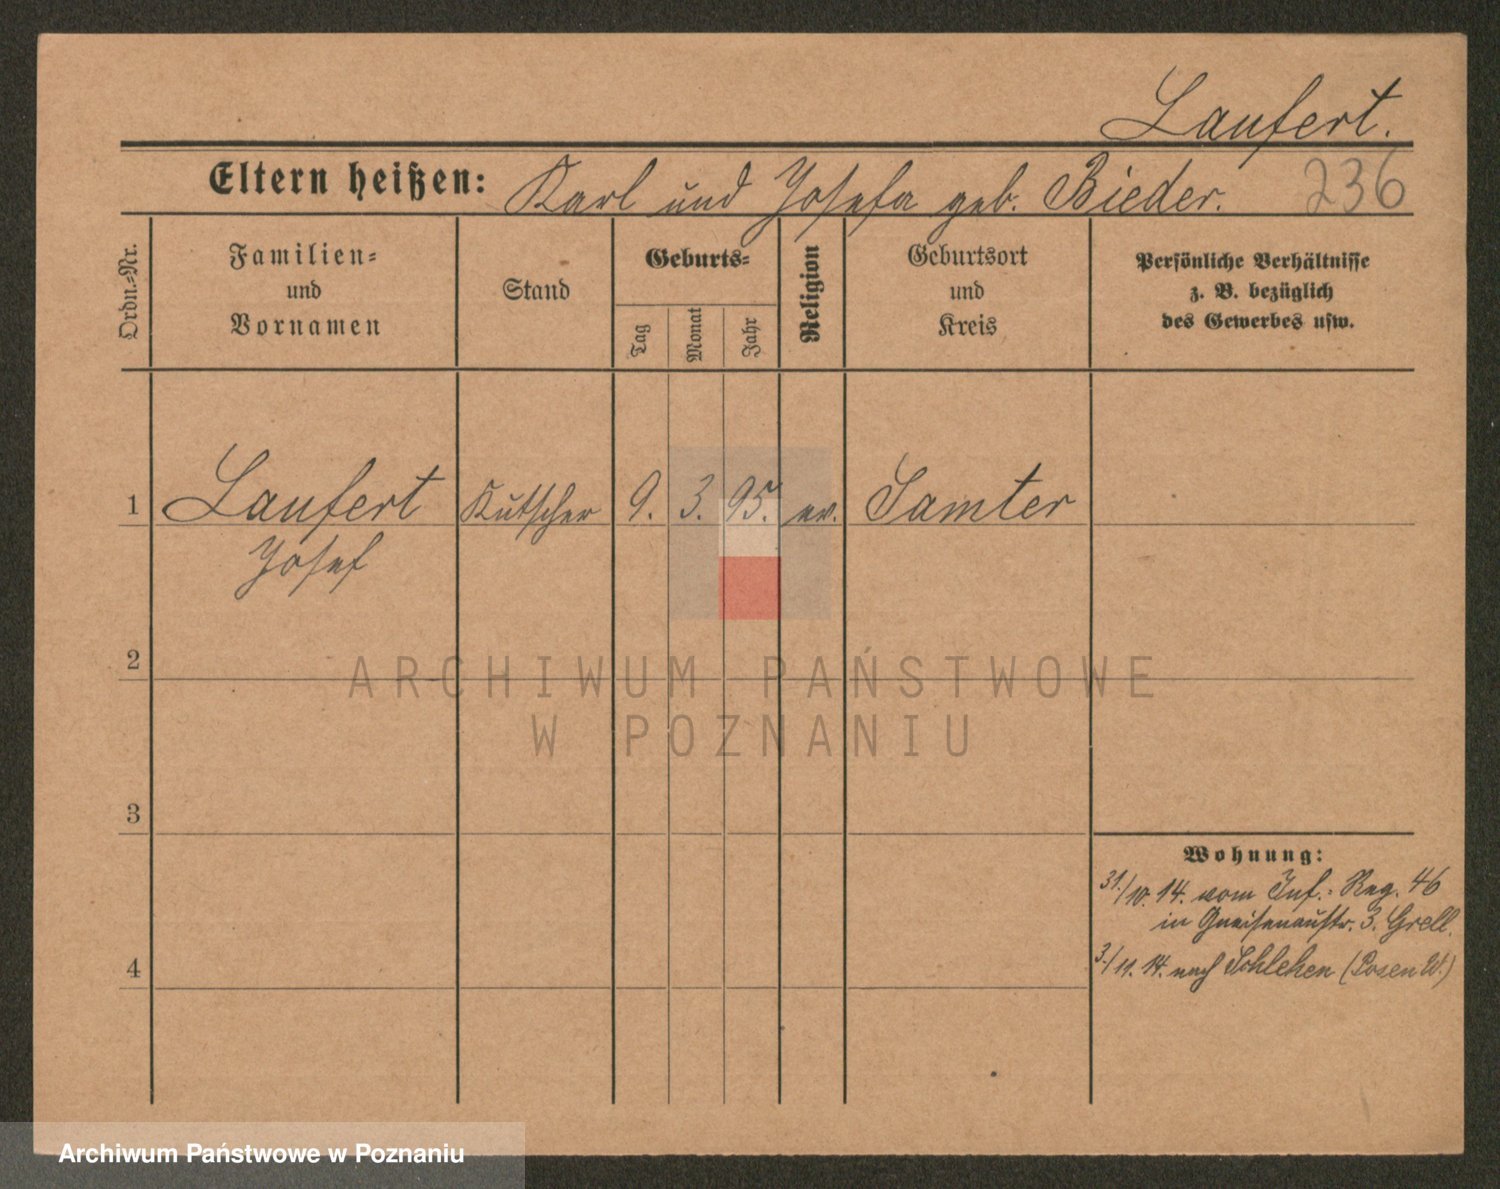 Laufert.
Eltern heißen: Karl und Josefa geb. Bieder. 236
Ordn.=Nr.
Familien=
und
Vornamen
Stand
Geburts=
Tag
Monat
Jahr
Religion
Geburtsort
und
Kreis
Persönliche Verhältnisse
z. B. bezüglich
des Gewerbes usw.
1 Laufert Kutscher 9. 3. 95. ev. Samter
Josef
2
3
4
Wohnung:
31./10. 14. vom Inf.= Reg. 46
in Gneisenaustr. 3. Grell.
3./11. 14. nach Schlehen (Posen W.)
ARCHIWUM PAŃSTWOWE
W POZNANIU
Archiwum Państwowe w Poznaniu